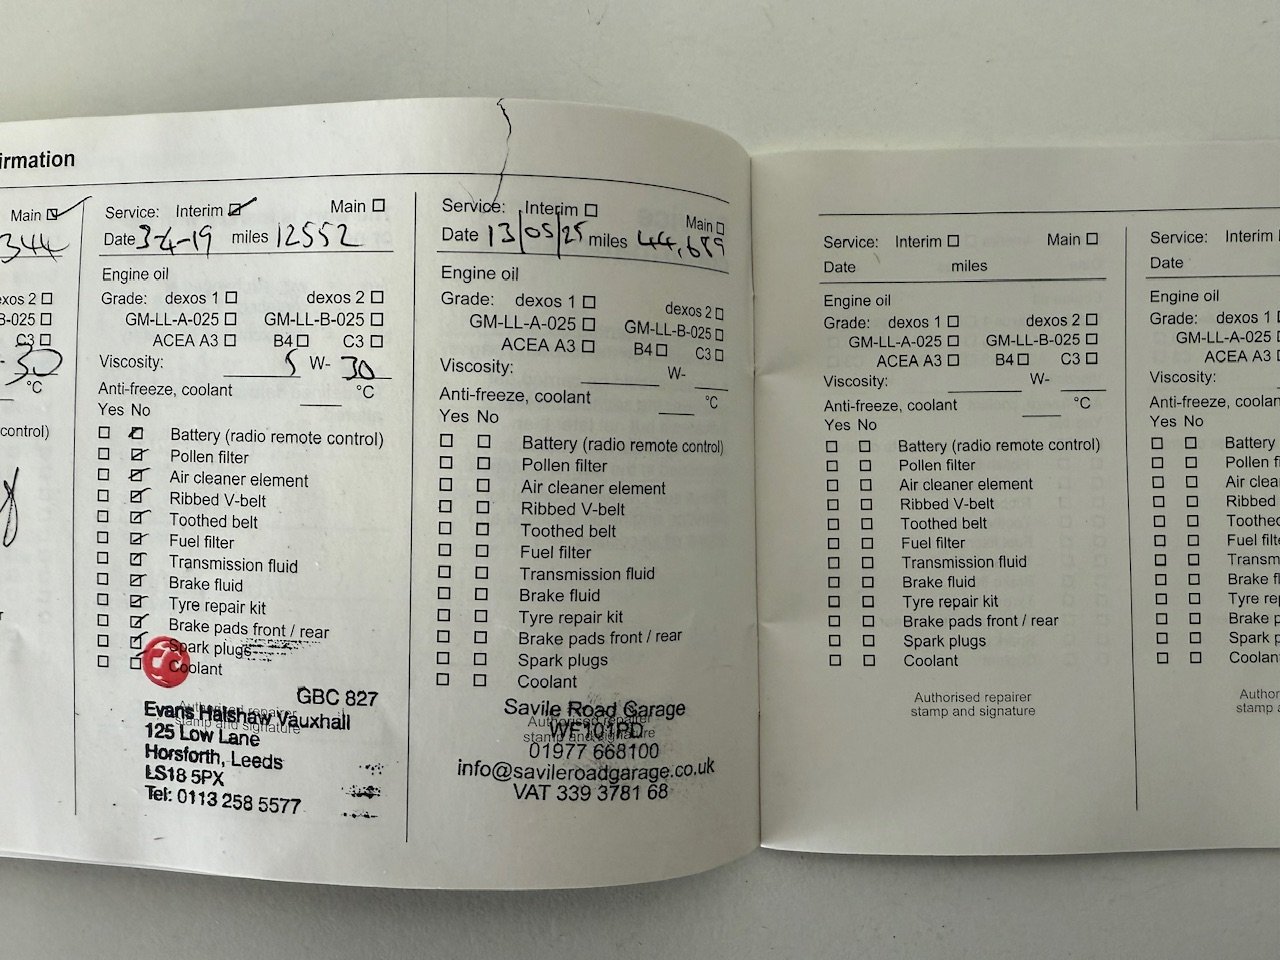 irmation
Main
344
exos 2
B-025
C3
-30
°C
control)
Service: Interim Main
Date 3-4-19 miles 12552
Engine oil
Grade: dexos 1 dexos 2
GM-LL-A-025 GM-LL-B-025
ACEA A3 B4 C3
Viscosity: 5 W- 30
Anti-freeze, coolant °C
Yes No
Battery (radio remote control)
Pollen filter
Air cleaner element
Ribbed V-belt
Toothed belt
Fuel filter
Transmission fluid
Brake fluid
Tyre repair kit
Brake pads front / rear
Spark plugs
Coolant
GBC 827
Authorised repairer
stamp and signature
Evans Halshaw Vauxhall
125 Low Lane
Horsforth, Leeds
LS18 5PX
Tel: 0113 258 5577
Service: Interim Main
Date 13/05/25 miles 44,689
Engine oil
Grade: dexos 1 dexos 2
GM-LL-A-025 GM-LL-B-025
ACEA A3 B4 C3
Viscosity: W-
Anti-freeze, coolant °C
Yes No
Battery (radio remote control)
Pollen filter
Air cleaner element
Ribbed V-belt
Toothed belt
Fuel filter
Transmission fluid
Brake fluid
Tyre repair kit
Brake pads front / rear
Spark plugs
Coolant
Savile Road Garage
Authorised repairer
WF101PD
stamp and signature
01977 668100
info@savileroadgarage.co.uk
VAT 339 3781 68
Service: Interim Main
Date miles
Engine oil
Grade: dexos 1 dexos 2
GM-LL-A-025 GM-LL-B-025
ACEA A3 B4 C3
Viscosity: W-
Anti-freeze, coolant °C
Yes No
Battery (radio remote control)
Pollen filter
Air cleaner element
Ribbed V-belt
Toothed belt
Fuel filter
Transmission fluid
Brake fluid
Tyre repair kit
Brake pads front / rear
Spark plugs
Coolant
Authorised repairer
stamp and signature
Service: Interim
Date
Engine oil
Grade: dexos 1
GM-LL-A-025
ACEA A3
Viscosity:
Anti-freeze, coolan
Yes No
Battery
Pollen fi
Air clea
Ribbed
Toothed
Fuel filte
Transm
Brake fl
Tyre rep
Brake p
Spark p
Coolan
Autho
stamp a